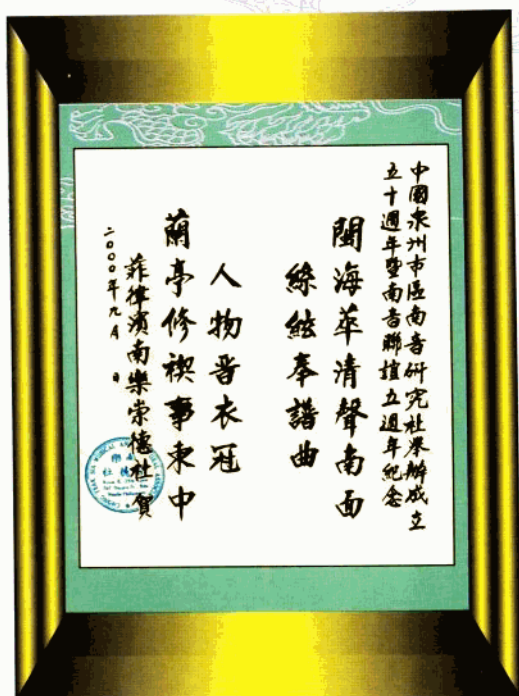 中國泉州市區南音研究社舉辦成立
五十週年暨南音聯誼五週年紀念
閩海萃清聲南面
絲絃奉譜曲
人物晋衣冠
蘭亭修禊事東中
菲律濱南樂崇德社賀
二〇〇〇年九月 日